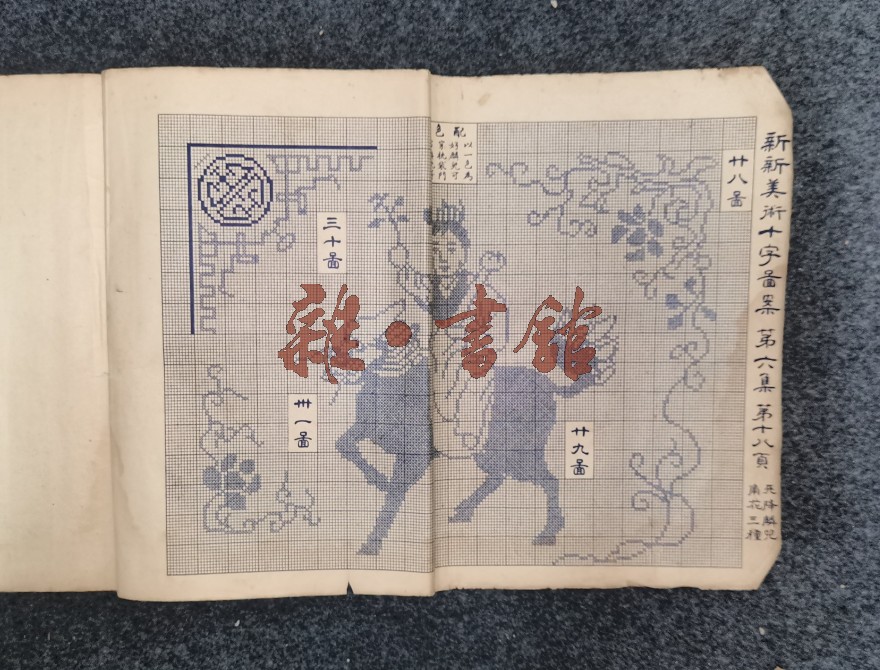 新新美術十字圖案 第六集 第十八頁
天降麟兒
角花三種
廿八圖
配色
以一色為
廿九圖
三十圖
卅一圖
雜·書館